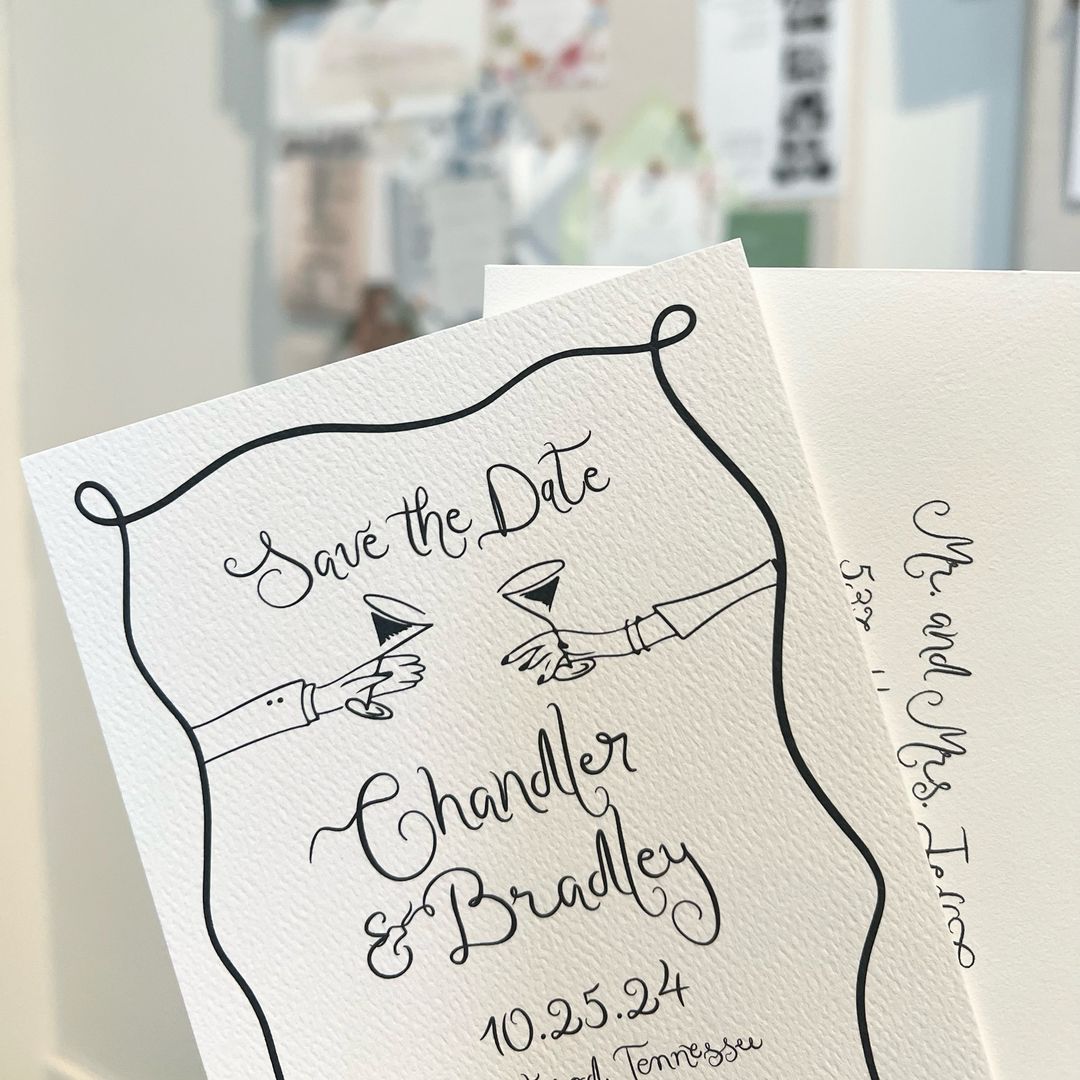 Save the Date
Chandler
& Bradley
10.25.24
Tennessee
Mr. and Mrs.